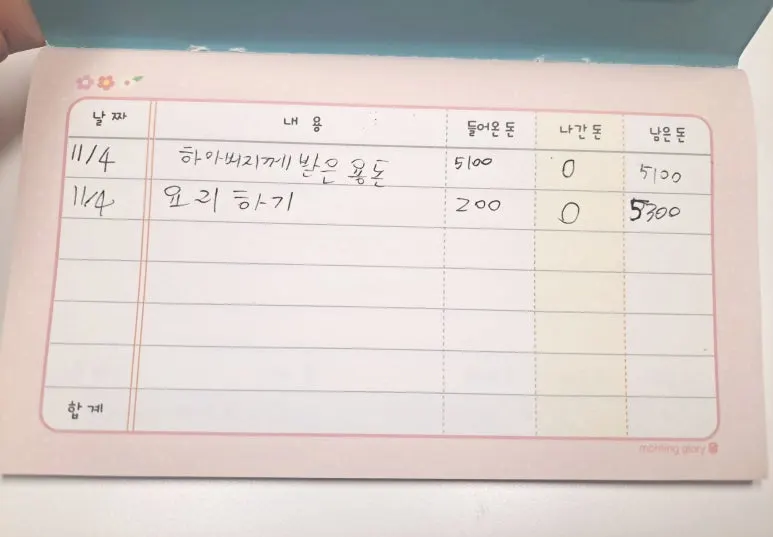 날짜 내용 들어온돈 나간돈 남은돈
11/4 하아버지께 받은 용돈 5100 0 5100
11/4 요리 하기 200 0 5300
합계
morning glory